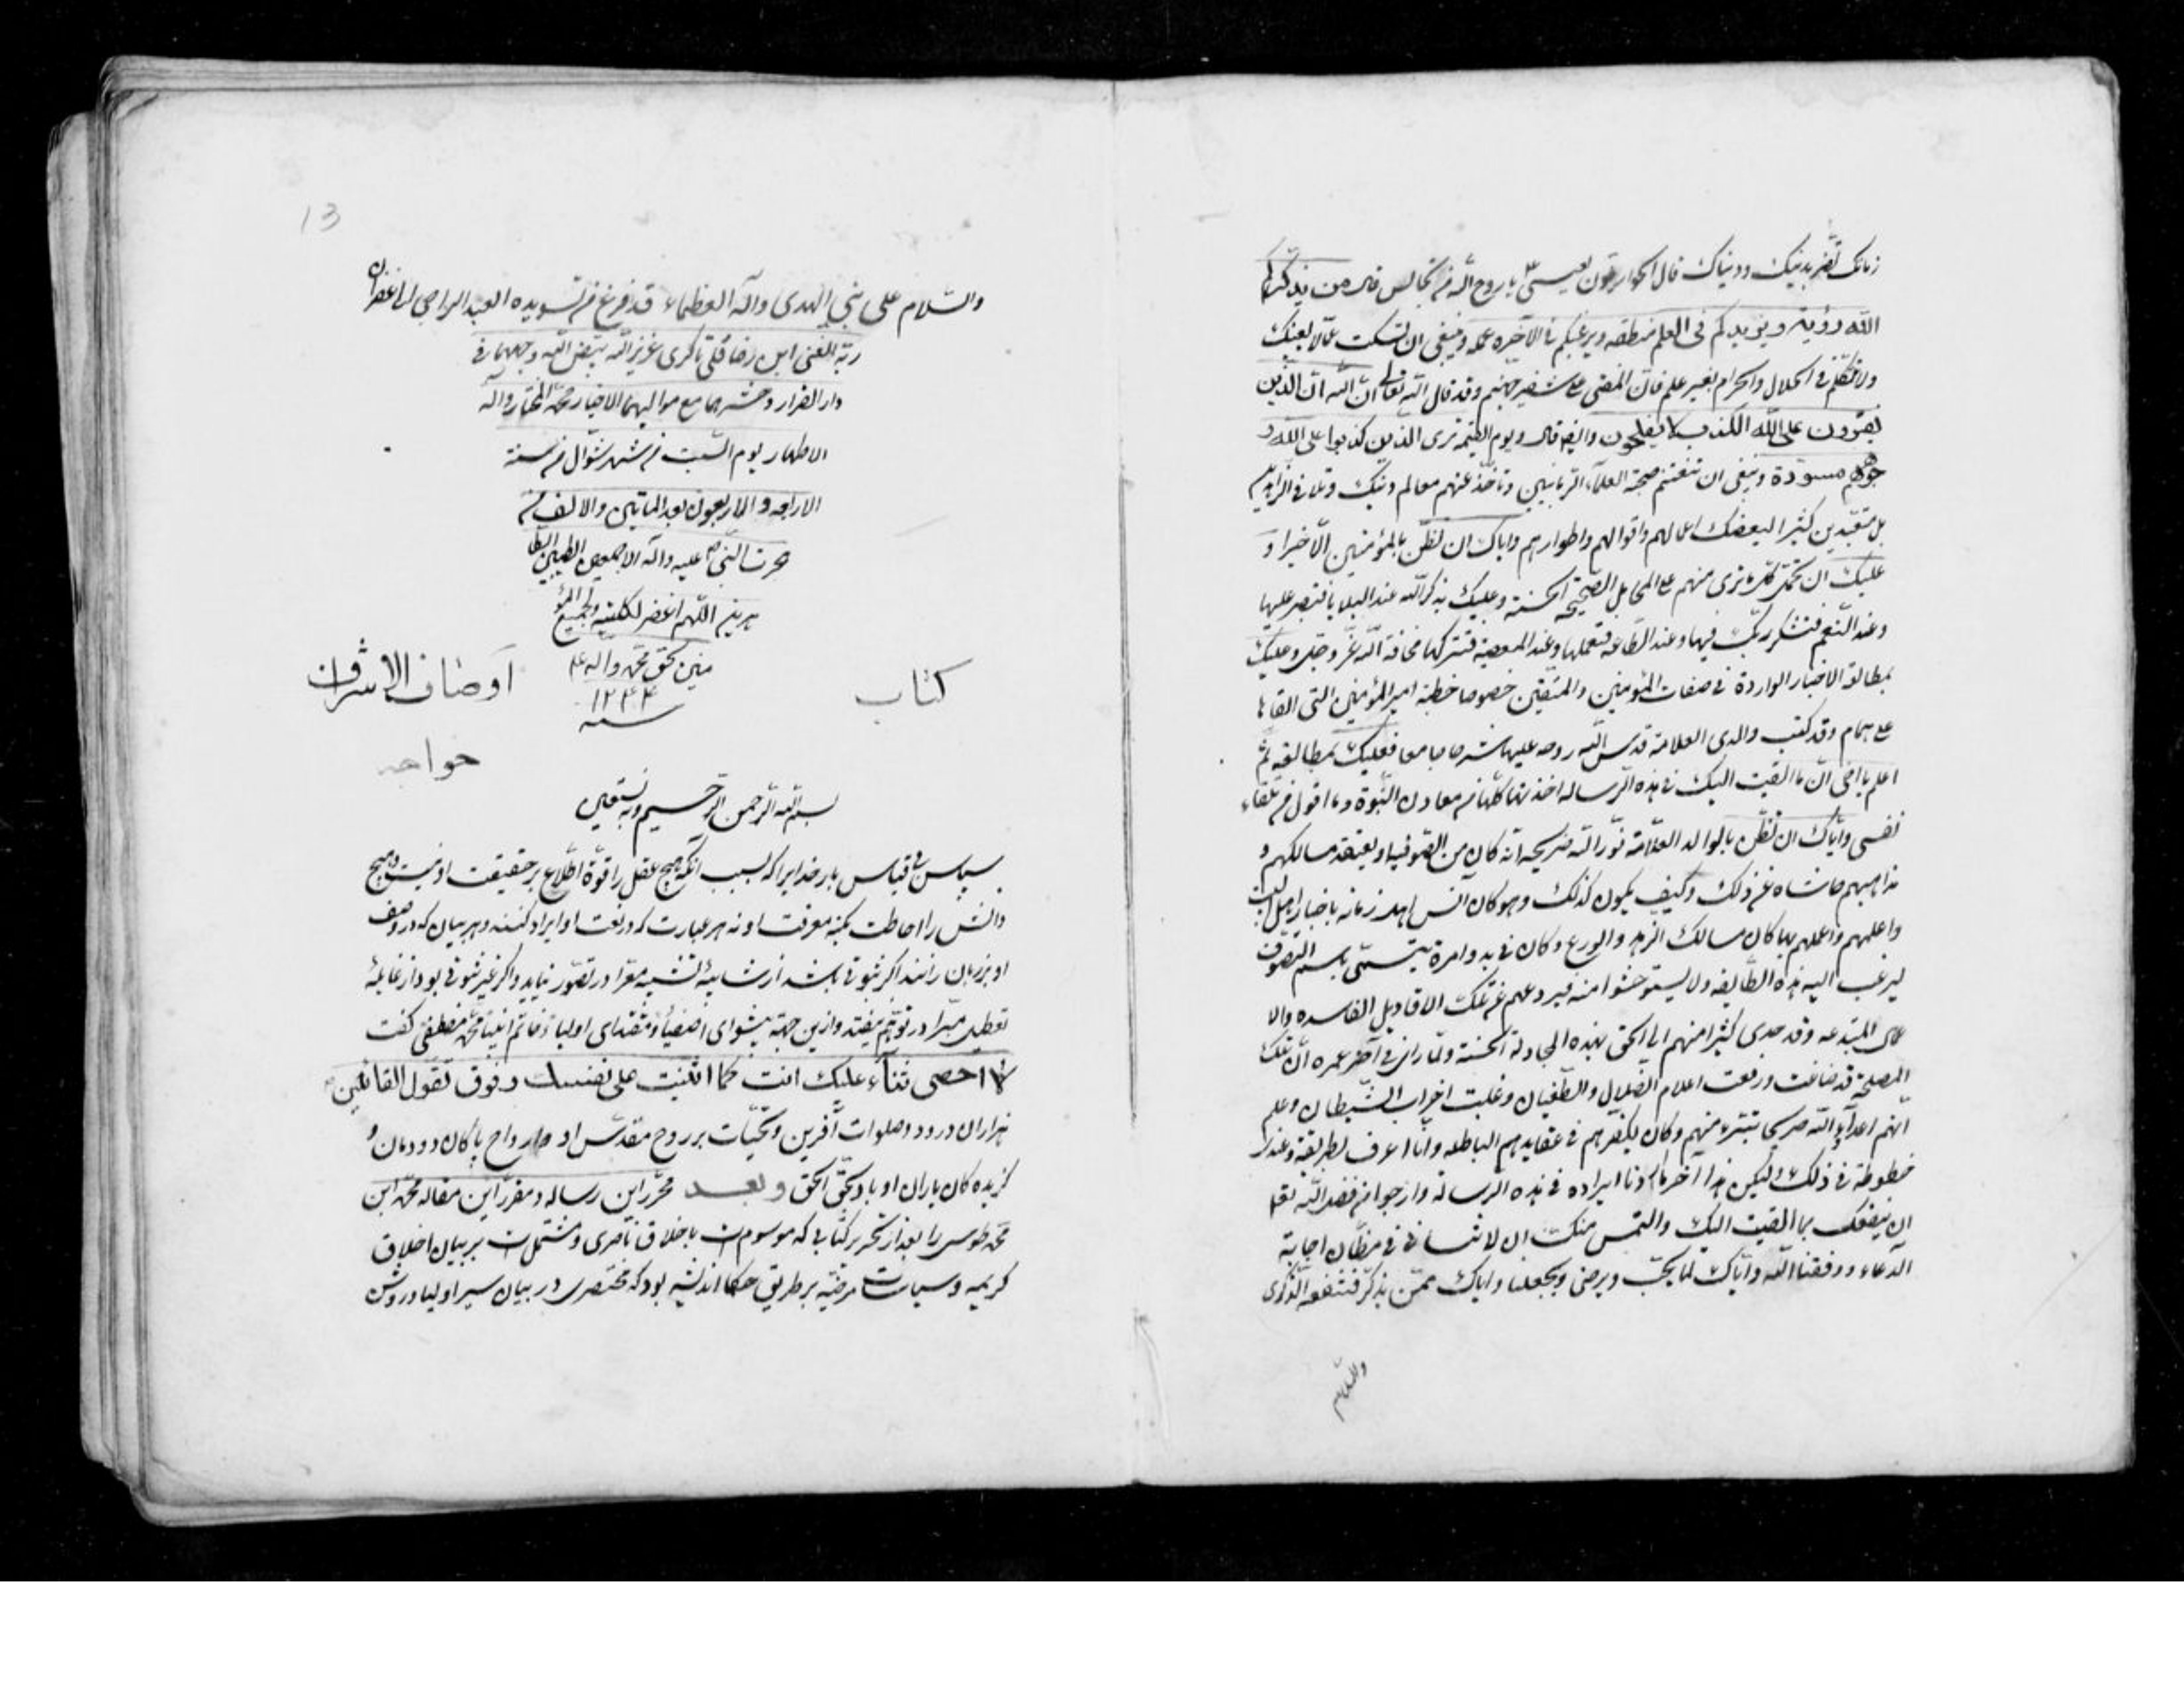 زمانک تضر بدینک ودنیاک قال الحواریون لعیسی ع یا روح الله من نجالس قال من یذکرکم
الله رؤیته ویزیدکم فی العلم منطقه ویرغبکم فی الآخرة عمله وینبغی ان تسکت عما لا یعنیک
ولا تتکلم فی الحلال والحرام بغیر علم فان المفتی علی شفیر جهنم وقد قال الله تعالی ان الذین
یفترون علی الله الکذب لا یفلحون وایضا قال ویوم القیمة تری الذین کذبوا علی الله و
جوههم مسودة وینبغی ان تغتنم صحبة العلماء الربانیین وتأخذ عنهم معالم دینک
بل متعبدین کثیرا لیعظک اعمالهم واقوالهم واطوارهم وایاک ان تظن بالمؤمنین الا خیرا و
علیک ان تحمل کلما تری منهم علی المحامل الصحیحة الحسنة وعلیک بذکر الله عند البلایا فتصبر علیها
وعند النعم فتشکر ربک فیها وعند الطاعة فتعملها وعند المعصیة فتترکها مخافة الله عز وجل وعلیک
بمطالعة الاخبار الواردة فی صفات المؤمنین والمتقین خصوصا خطبة امیر المؤمنین التی القاها
علی همام وقد کتب والدی العلامة قدس الله روحه علیها شرحا جامعا فعلیک بمطالعته ثم
اعلم یا اخی ان ما القیت الیک فی هذه الرسالة اخذتها کلها من معادن النبوة وما اقول من تلقاء
نفسی وایاک ان تظن بالوالد العلامة نور الله ضریحه انه کان من الصوفیة او یعتقد مسالکهم و
مذاهبهم حاشاه عن ذلک وکیف یکون کذلک وهو کان آنس اهل زمانه باخبار اهل البیت
واعلمهم واعملهم بها کان مسالک الزهد والورع وکان فی بدو امره یتسمی باسم التصوف
لیرغب الیه هذه الطائفة ولا یستوحشوا منه فیردعهم عن تلک الاقاویل الفاسدة والا
عمال المبتدعة وقد هدی کثیرا منهم الی الحق بهذه المجادلة الحسنة ولما رای فی آخر عمره ان تلک
المصلحة قد ضاعت ورفعت اعلام الضلال والطغیان وغلبت احزاب الشیطان وعلم
انهم اعداء الله صریحا تبرء منهم وکان یکفرهم فی عقایدهم الباطلة وانا اعرف بطریقته وعندی
خطوطه فی ذلک ولیکن هذا آخر ما اردنا ایراده فی هذه الرسالة وارجو من فضل الله تعالی
ان ینفعک بما القیت الیک والتمس منک ان لا تنسانی فی مظان اجابة
الدعاء ووفقنا الله وایاک لما یحب ویرضی ویجعلنا وایاک ممن یذکر فتنفعه الذکری
والسلام
13
والسلام علی نبی الهدی وآله العظماء قد فرغ من تسویده العبد الراجی الی غفران
ربه الغنی ابن رضا قلی عزیز الله بیض الله وجههما فی
دار القرار وحشرهما مع موالیهما الاخیار محمد المختار وآله
الاطهار یوم السبت من شهر شوال من سنة
الاربعة والاربعون بعد الماتین والالف من
هجرت النبی ص علیه وآله الاجمعین الطیبین الطا
هرین اللهم اغفر لکاتبه ولجمیع المؤ
منین بحق محمد وآله ع
۱۲۴۴
سنه
کتاب اوصاف الاشراف
خواجه
بسم الله الرحمن الرحیم وبه نستعین
سپاس بی قیاس بار خدایرا که بسبب آنکه هیچ عقل را قوة اطلاع بر حقیقت او نیست و هیچ
دانش را احاطت بکنه معرفت او نه هر عبارت که در نعت او ایراد کنند و هر بیان که در وصف
او بر زبان رانند اگر ثبوتی باشد از شایبهٔ تشبیه معرا در تصور نیاید و اگر غیر ثبوتی بود از غایلهٔ
تعطیل مبرا در توهم نیفتد و ازین جهة پیشوای اصفیا و مقتدای اولیا و خاتم انبیا محمد مصطفی گفت
لا احصی ثناء علیک انت کما اثنیت علی نفسک وفوق تقول القائلین
هزاران درود و صلوات و آفرین و تحیات بر روح مقدس او و ارواح پاکان دودمان و
گزیده کان یاران او باد بحق الحق وبعد محرر این رساله و مقرر این مقاله محمد ابن
محمد طوسی را بعد از تحریر کتابی که موسومست باخلاق ناصری و مشتملست بر بیان اخلاق
کریمه و سیاسات مرضیه بر طریق حکما اندیشه بود که مختصری در بیان سیر اولیا و روش